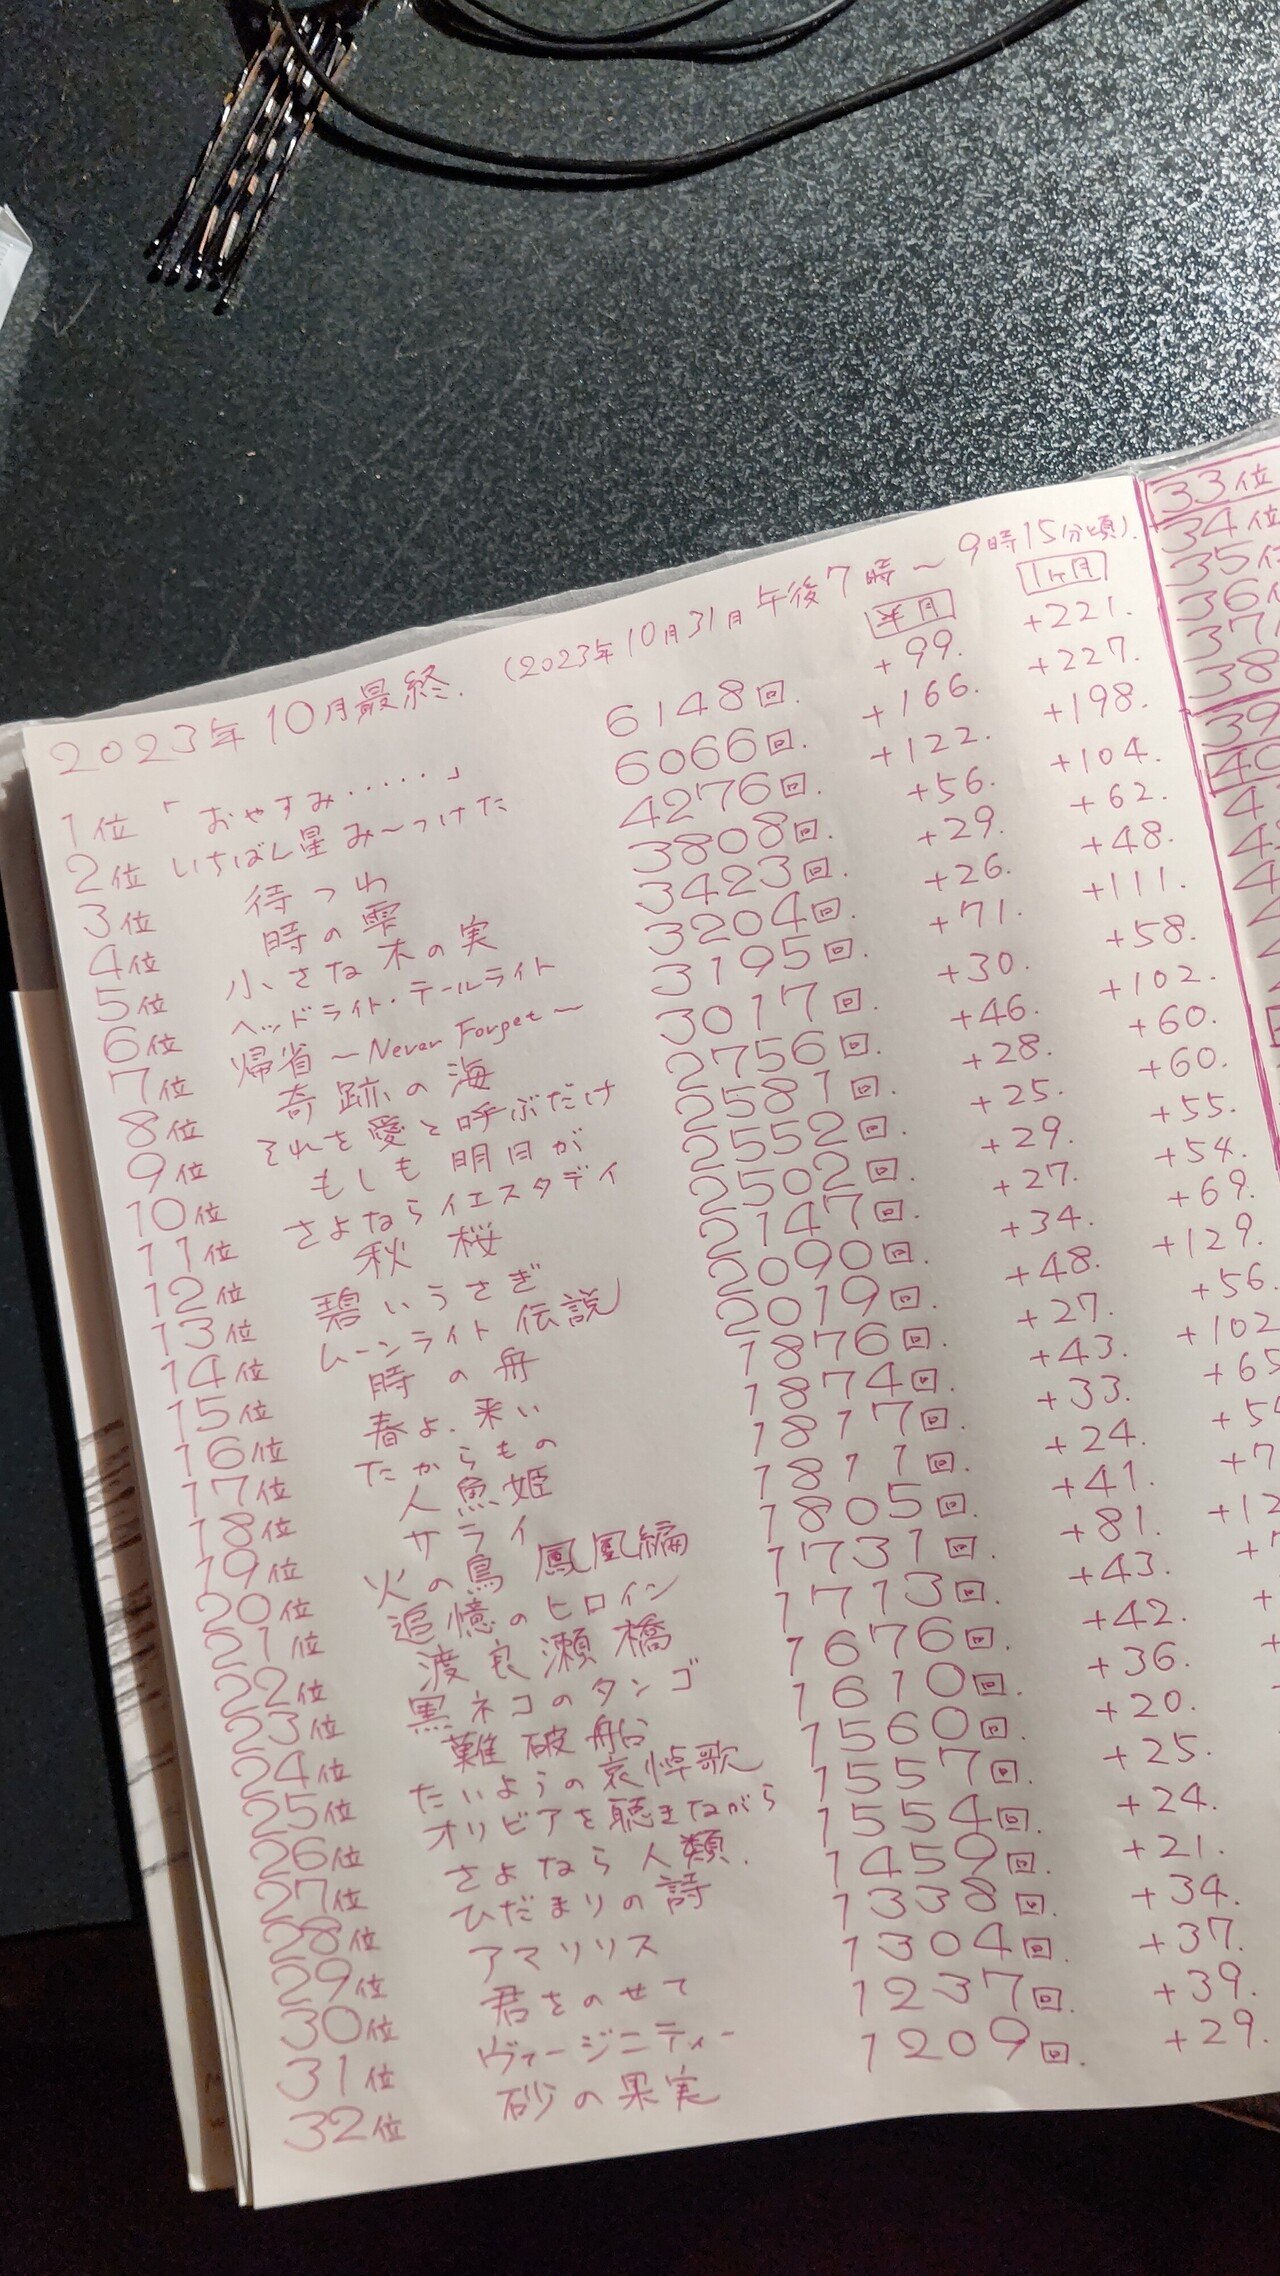 2023年10月最終. (2023年10月31日 午後7時〜9時15分頃).
半月 1ヶ月
1位 「おやすみ・・・・・」 6148回. +99. +221.
2位 いちばん星み〜つけた 6066回. +166. +227.
3位 待つわ 4276回. +122. +198.
4位 時の雫 3808回. +56. +104.
5位 小さな木の実 3423回. +29. +62.
6位 ヘッドライト・テールライト 3204回. +26. +48.
7位 帰省〜Never Forget〜 3195回. +71. +111.
8位 奇跡の海 3017回. +30. +58.
9位 それを愛と呼ぶだけ 2756回. +46. +102.
10位 もしも明日が 2581回. +28. +60.
11位 さよならイエスタデイ 2552回. +25. +60.
12位 秋桜 2502回. +29. +55.
13位 碧いうさぎ 2147回. +27. +54.
14位 ムーンライト伝説 2090回. +34. +69.
15位 時の舟 2019回. +48. +129.
16位 春よ、来い 1876回. +27. +56.
17位 たからもの 1874回. +43. +102
18位 人魚姫 1817回. +33. +65
19位 サライ 1811回. +24.
20位 火の鳥 鳳凰編 1805回. +41.
21位 追憶のヒロイン 1731回. +81.
22位 渡良瀬橋 1713回. +43.
23位 黒ネコのタンゴ 1676回. +42.
24位 難破船 1610回. +36.
25位 たいようの哀悼歌 1560回. +20.
26位 オリビアを聴きながら 1557回. +25.
27位 さよなら人類. 1554回. +24.
28位 ひだまりの詩 1459回. +21.
29位 アマリリス 1338回. +34.
30位 君をのせて 1304回. +37.
31位 ヴァージニティー 1237回. +39.
32位 砂の果実 1209回. +29.
33位
34位
35位
36位
37位
38
39
40